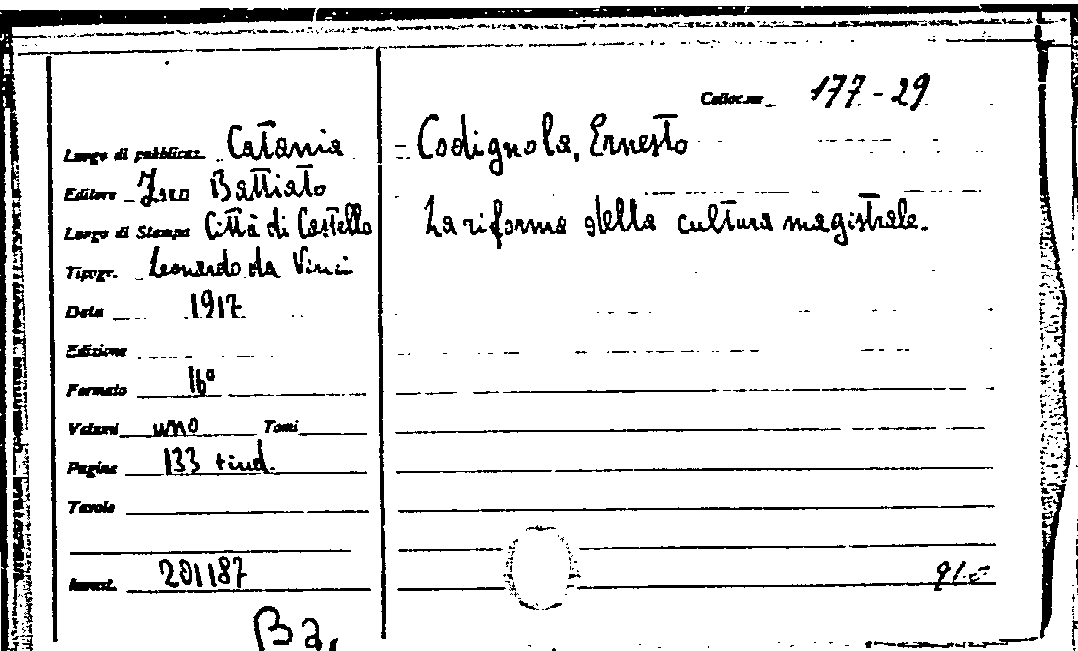 Colloc.ne 177-29
Luogo di pubblicaz. Catania
Editore Battiato
Luogo di Stampa Città di Castello
Tipogr. Leonardo da Vinci
Data 1917
Edizione
Formato 16°
Volumi uno Tomi
Pagine 133 + ind.
Tavole
Invent. 201187
Codignola, Ernesto
La riforma della cultura magistrale.